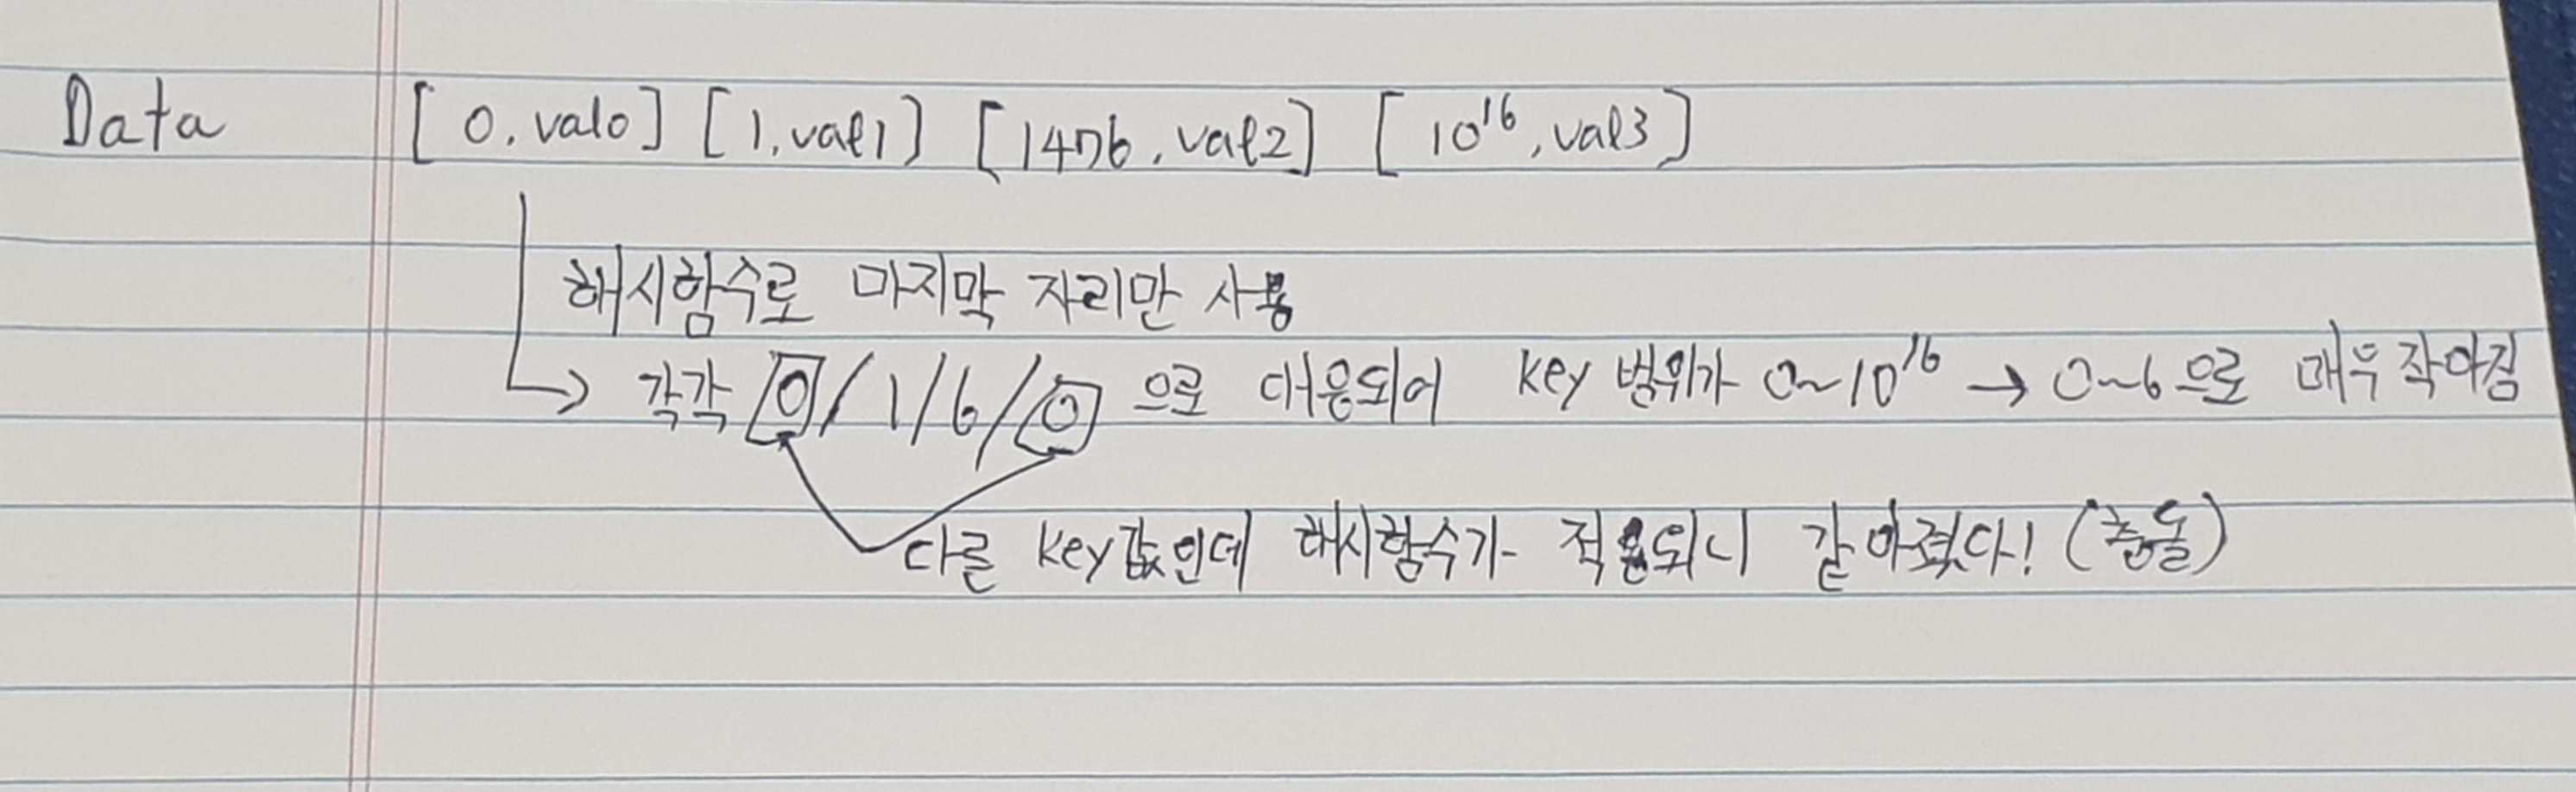 Data [0, val0] [1, val1] [1476, val2] [10¹⁶, val3]
해시함수로 마지막 자리만 사용
→ 각각 0/1/6/0 으로 대응되어 key 범위가 0~10¹⁶ → 0~6으로 매우 작아짐
다른 key값인데 해시함수가 적용되니 같아졌다! (충돌)